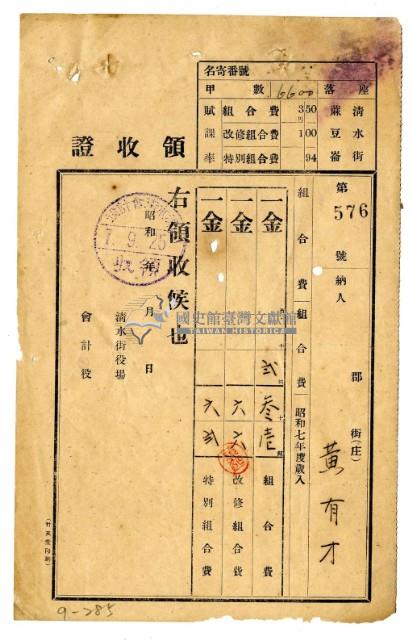 名寄番號
甲數 6600 座落
賦課率 組合費 3円50
改修組合費 1 00
特別組合費 94
清水街 秣豆崙
領收證
第 576 號 納人 郡 街(庄) 黃有才
組合費 組合費 昭和七年度歲入
一金 貳 叁 壹 組合費
一金 六 六 改修組合費
一金 六 貳 特別組合費
右領收候也
昭和 年 月 日
7.9.26
領收
清水街役場
會計役
國史館臺灣文獻館
TAIWAN HISTORICA
9-285